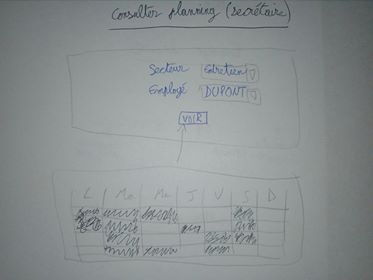 Consulter planning (secrétaire)
Secteur Entretien
Employé DUPONT
VOIR
L Ma Me J V S D